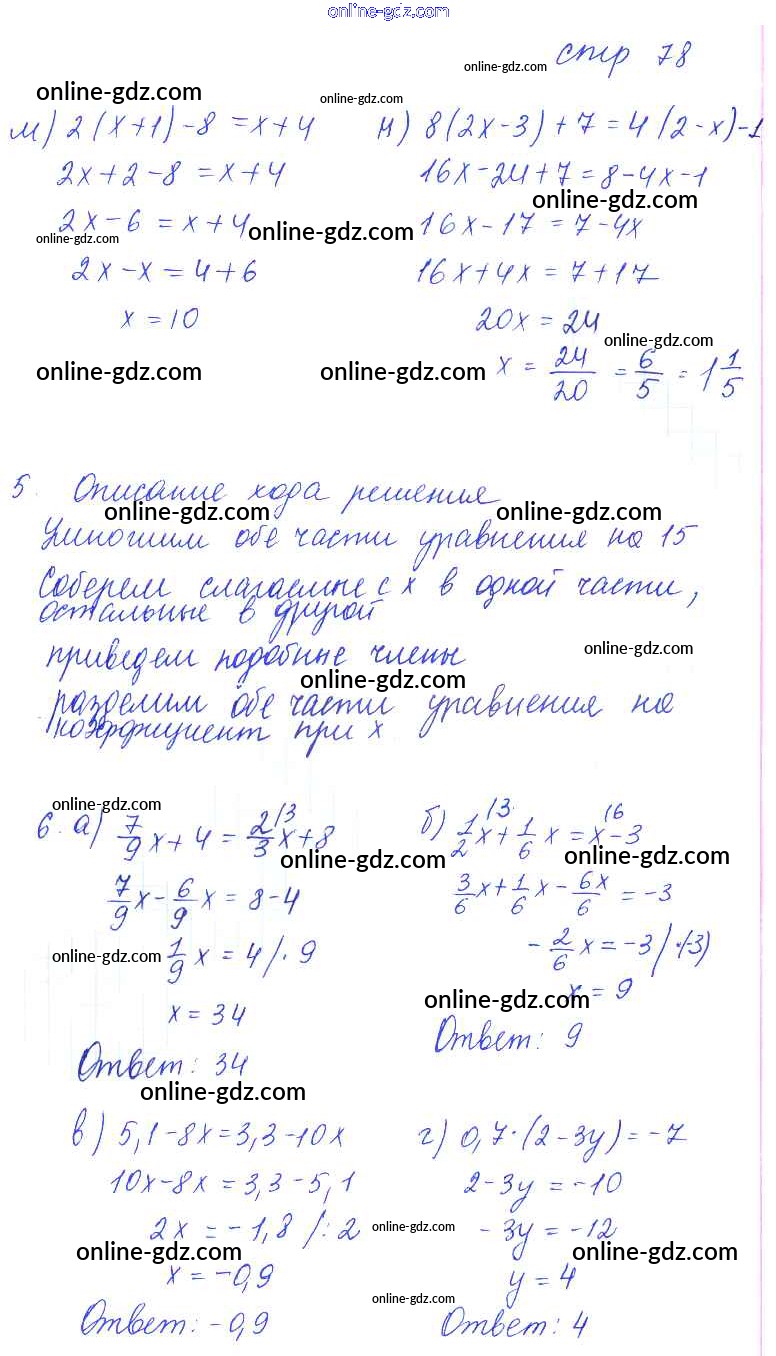 online-gdz.com
online-gdz.com стр 78
online-gdz.com online-gdz.com
м) 2(x+1)-8 = x+4
2x+2-8 = x+4
2x-6 = x+4
online-gdz.com online-gdz.com
2x-x = 4+6
x = 10
н) 8(2x-3)+7 = 4(2-x)-1
16x-24+7 = 8-4x-1
online-gdz.com
16x-17 = 7-4x
16x+4x = 7+17
20x = 24
online-gdz.com
x = 24/20 = 6/5 = 1 1/5
online-gdz.com online-gdz.com
5. Описание хода решения
online-gdz.com online-gdz.com
Умножим обе части уравнения на 15
Соберем слагаемые с x в одной части,
остальные в другой
online-gdz.com
приведем подобные члены
online-gdz.com
разделим обе части уравнения на
коэффициент при x
online-gdz.com
6. а) 7/9 x + 4 = 2/3 x + 8 (3
online-gdz.com
7/9 x - 6/9 x = 8-4
online-gdz.com
1/9 x = 4 /· 9
x = 34
Ответ: 34
online-gdz.com
б) 1/2 x + 1/6 x = x - 3 (3 (6
online-gdz.com
3/6 x + 1/6 x - 6x/6 = -3
- 2/6 x = -3 /·(-3)
online-gdz.com
x = 9
Ответ: 9
в) 5,1-8x = 3,3-10x
10x-8x = 3,3-5,1
2x = -1,8 /: 2
online-gdz.com
x = -0,9
Ответ: -0,9
г) 0,7·(2-3y) = -7
2-3y = -10
online-gdz.com
-3y = -12
online-gdz.com
y = 4
online-gdz.com
Ответ: 4